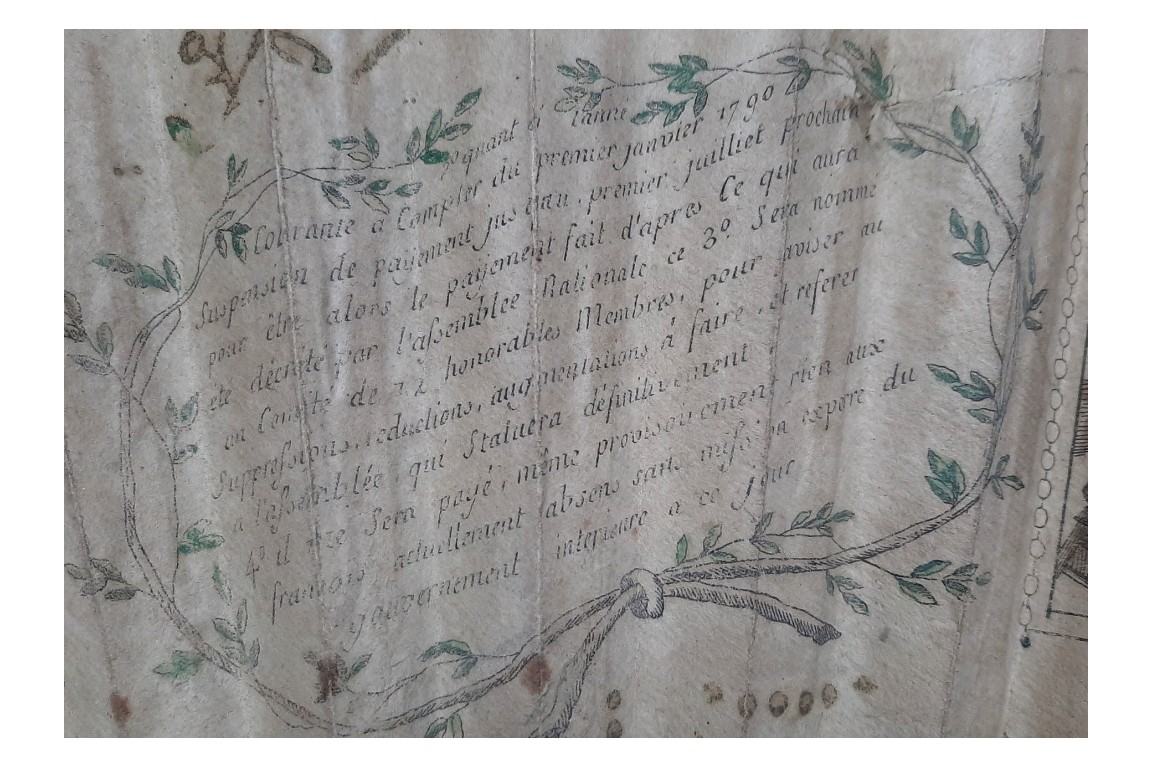 2o quant à l'anné
Courante à Compter du premier janvier 1790
Suspension de payement jusqu'au premier juilliet prochain
pour être alors le payement fait d'apres Ce qui aura
été décreté par l'assemblée Nationale ce 3o. Sera nommé
un Comité de 12 honorables Membres, pour aviser au
Suppressions, reductions, augmentations à faire, et referer
a l'assemblée, qui Statuera définitivement,
4o. il ne Sera payé, même provisoirement rien aux
françois, actuellement absens sans mission expore du
gouvernement interieure a ce jour